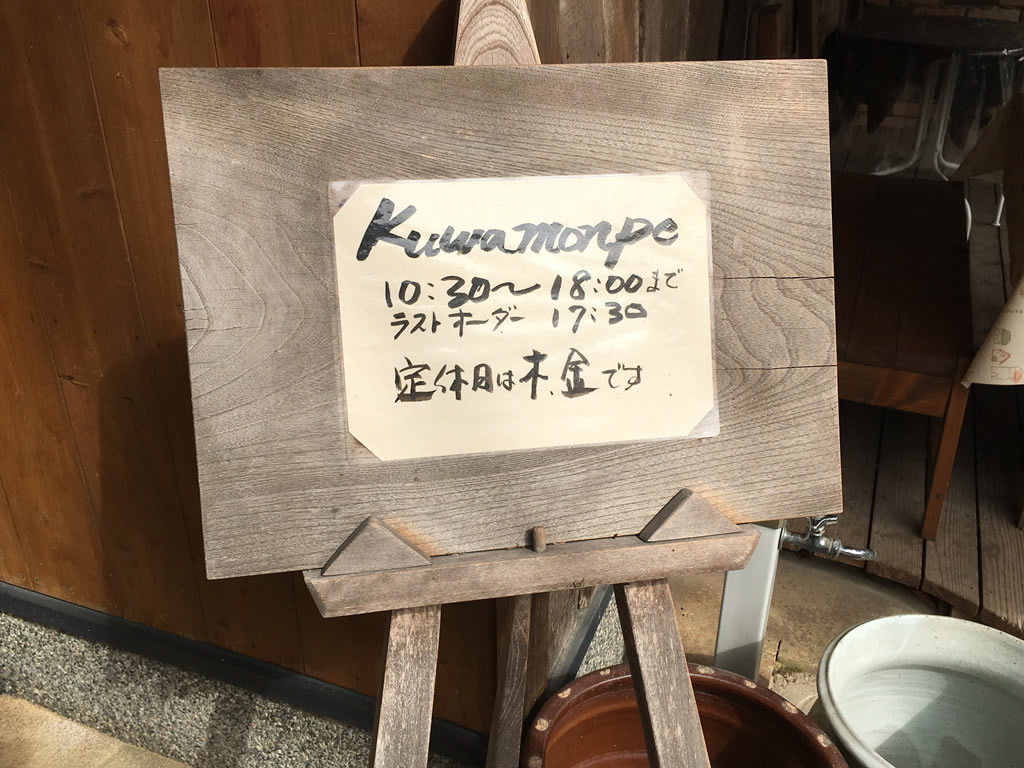 Kuwamonpe
10:30〜18:00まで
ラストオーダー 17:30
定休日は木、金です